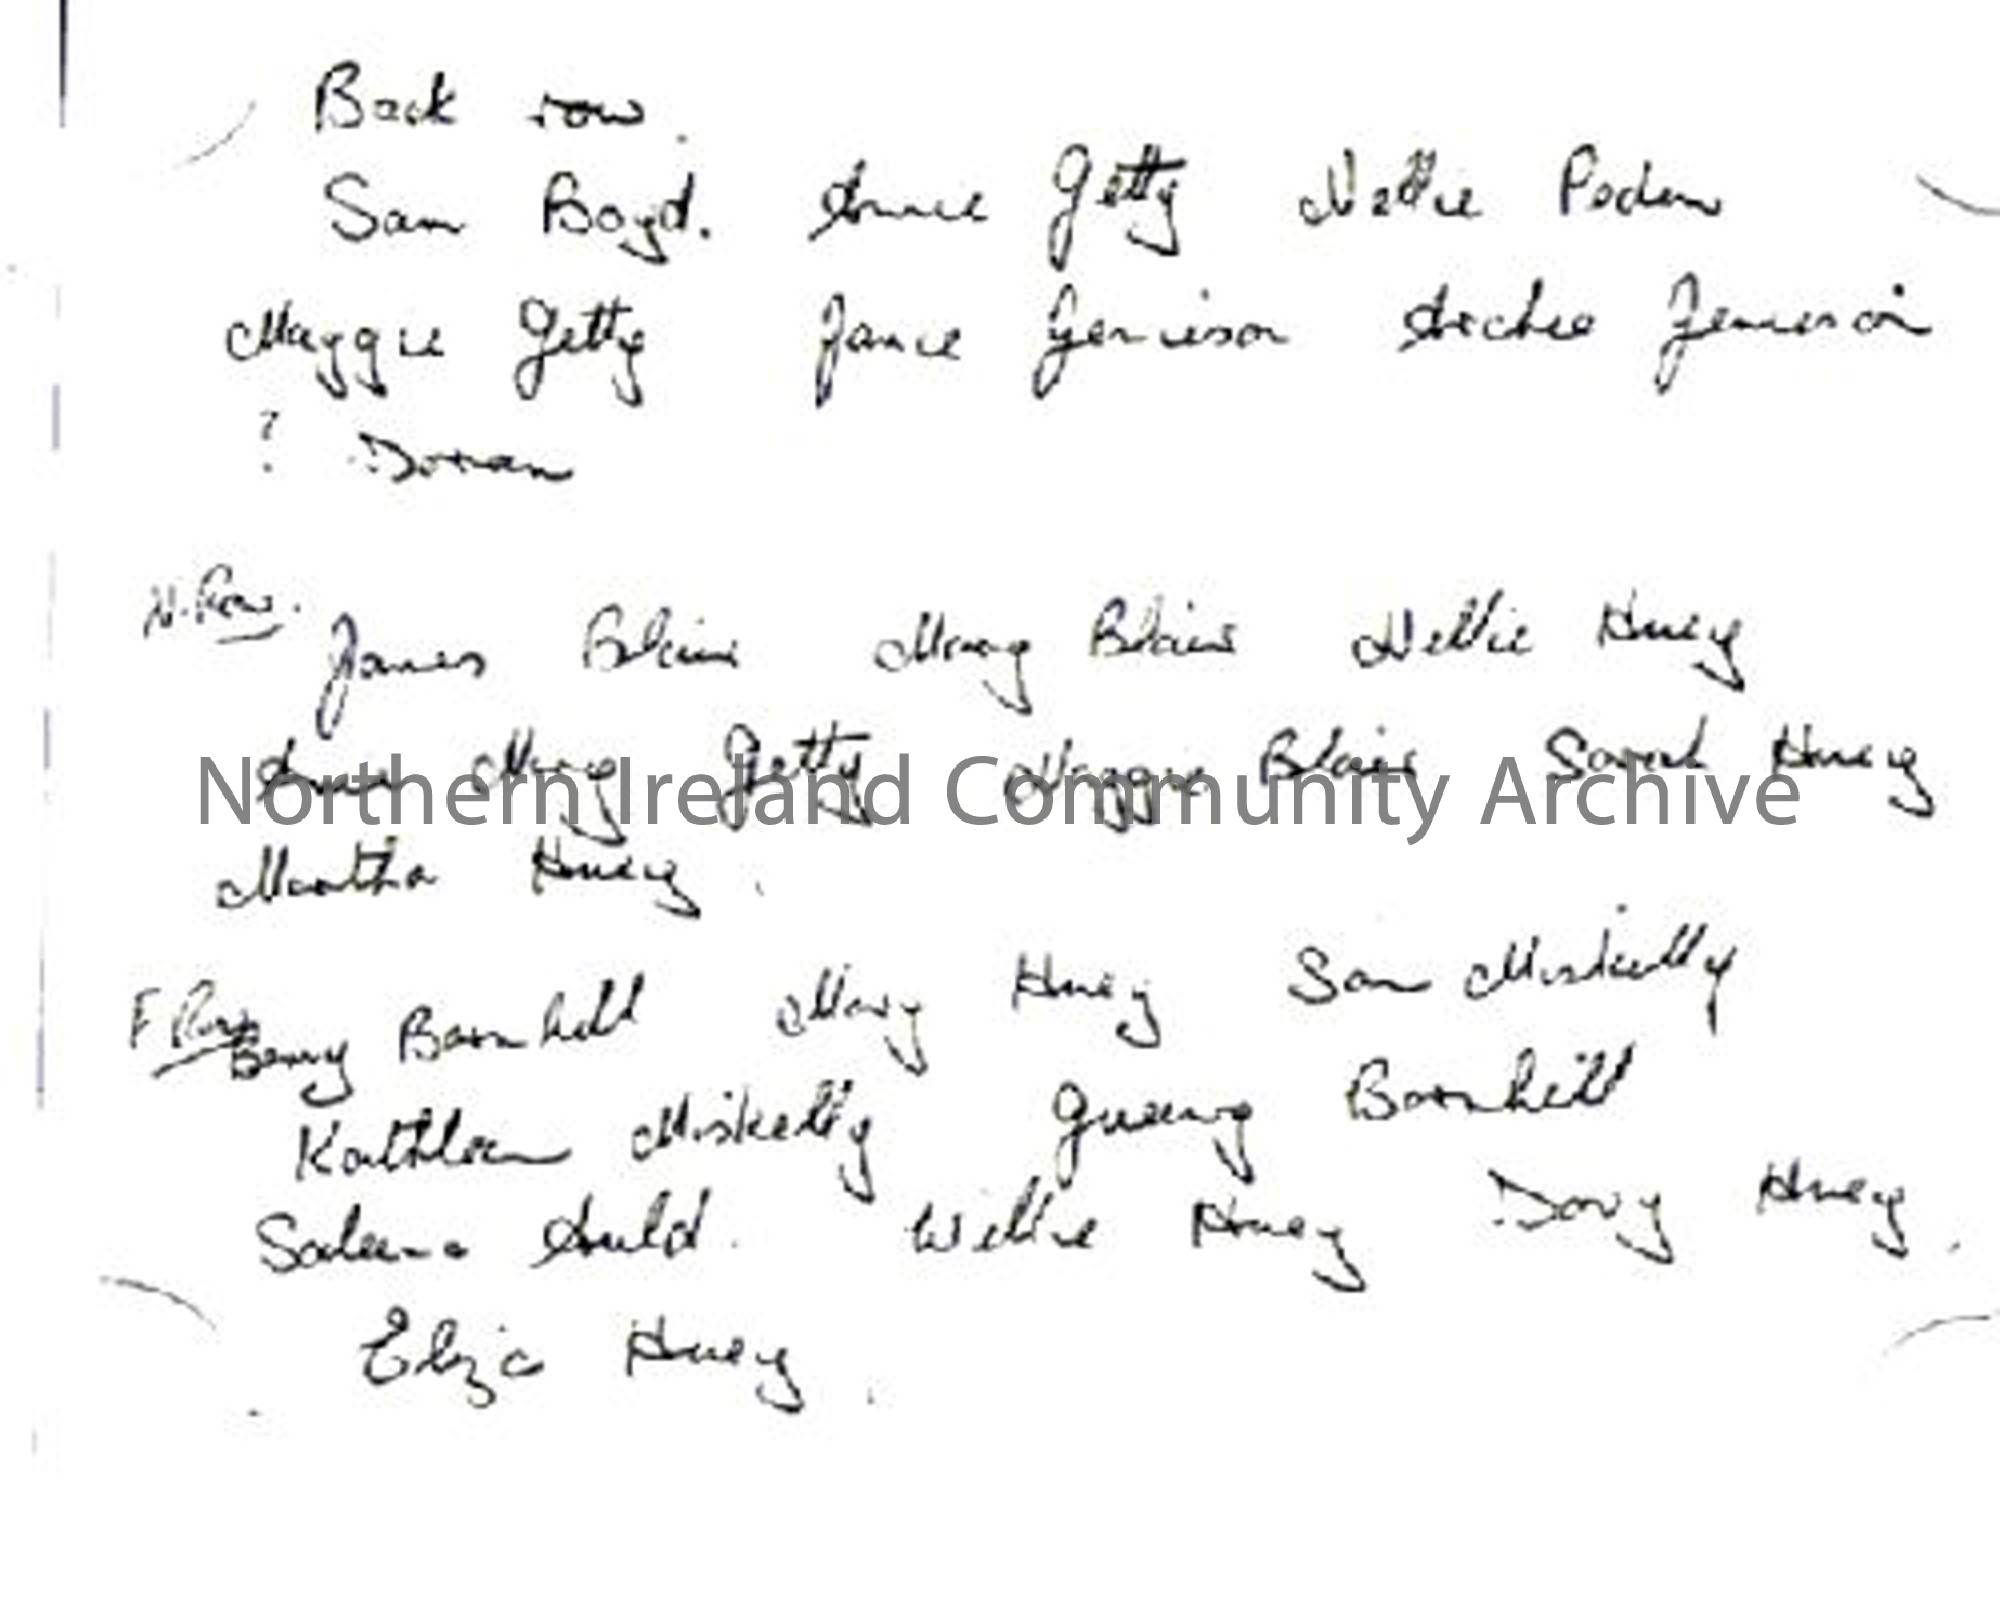 Back row.
Sam Boyd. Annie Getty Nellie Peden
Maggie Getty Jamie Jamieson Archie Jamieson
? Dorran
N. Row.
James Blair Mary Blair Nellie Huey
Annie Mary Getty Maggie Blair Sarah Huey
Northern Ireland Community Archive
Martha Huey.
F Row Benny Barnhill Mary Huey Sam Miskelly
Kathleen Miskelly Barnhill
Saleena Auld. Willie Huey Davy Huey.
Eliza Huey.